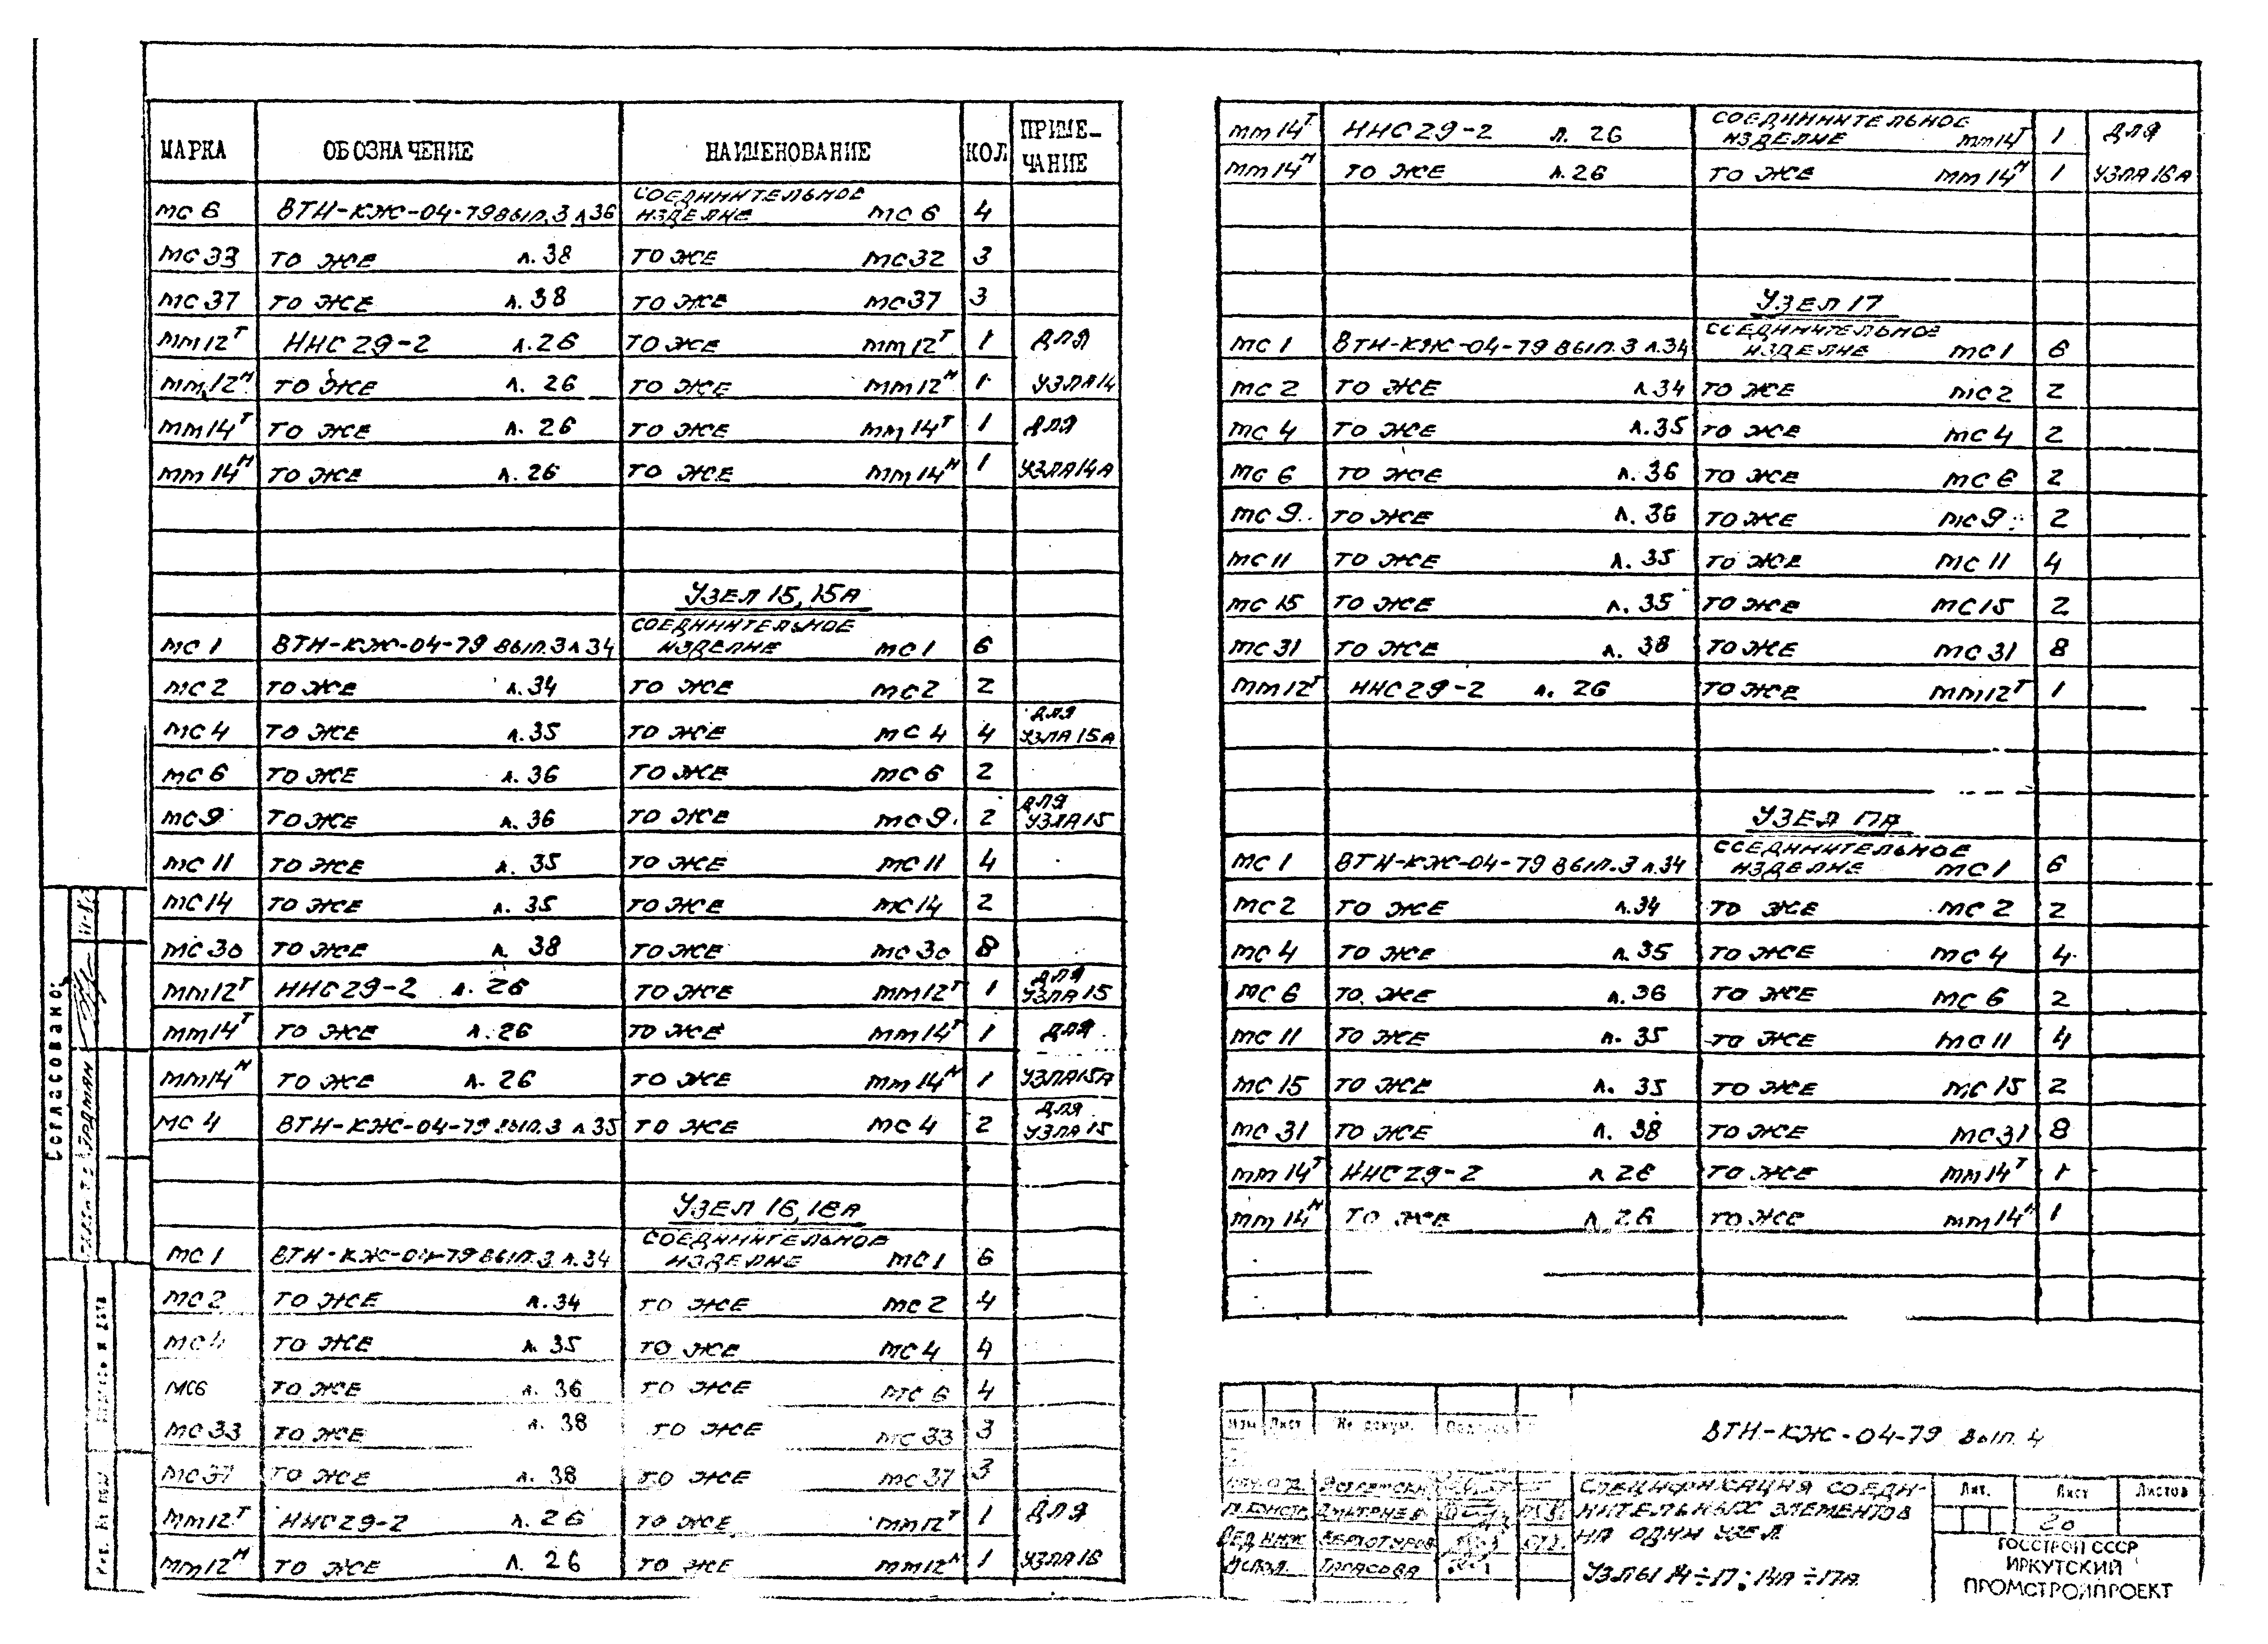 МАРКА ОБОЗНАЧЕНИЕ НАИМЕНОВАНИЕ КОЛ ПРИМЕ-ЧАНИЕ
МС 6 ВТН-КЖ-04-79 вып.3 л36 СОЕДИНИТЕЛЬНОЕ ИЗДЕЛИЕ МС 6 4
МС 33 ТО ЖЕ л.38 ТО ЖЕ МС32 3
МС 37 ТО ЖЕ л.38 ТО ЖЕ МС37 3
ММ12Т ННС 29-2 л.26 ТО ЖЕ ММ12Т 1 ДЛЯ
ММ12Н ТО ЖЕ л. 26 ТО ЖЕ ММ12Н 1 УЗЛА14
ММ14Т ТО ЖЕ л. 26 ТО ЖЕ ММ14Т 1 ДЛЯ
ММ14Н ТО ЖЕ л.26 ТО ЖЕ ММ14Н 1 УЗЛА14А
УЗЕЛ 15, 15А
МС 1 ВТН-КЖ-04-79 вып.3 л34 СОЕДИНИТЕЛЬНОЕ ИЗДЕЛИЕ МС1 6
МС 2 ТО ЖЕ л.34 ТО ЖЕ МС2 2
МС 4 ТО ЖЕ л.35 ТО ЖЕ МС 4 4 ДЛЯ УЗЛА 15А
МС 6 ТО ЖЕ л.36 ТО ЖЕ МС 6 2
МС 9 ТО ЖЕ л.36 ТО ЖЕ МС 9 2 ДЛЯ УЗЛА15
МС 11 ТО ЖЕ л. 35 ТО ЖЕ МС 11 4
МС 14 ТО ЖЕ л. 35 ТО ЖЕ МС14 2
МС 30 ТО ЖЕ л. 38 ТО ЖЕ МС 30 8
ММ12Т ННС 29-2 л. 26 ТО ЖЕ ММ12Т 1 ДЛЯ УЗЛА 15
ММ14Т ТО ЖЕ л.26 ТО ЖЕ ММ14Т 1 ДЛЯ
ММ14Н ТО ЖЕ л. 26 ТО ЖЕ ММ14Н 1 УЗЛА15А
МС 4 ВТН-КЖ-04-79 вып.3 л 35 ТО ЖЕ МС 4 2 ДЛЯ УЗЛА 15
УЗЕЛ 16, 16А
МС 1 ВТН-КЖ-04-79 вып.3 л.34 СОЕДИНИТЕЛЬНОЕ ИЗДЕЛИЕ МС1 6
МС 2 ТО ЖЕ л.34 ТО ЖЕ МС 2 4
МС 4 ТО ЖЕ л. 35 ТО ЖЕ МС 4 4
МС6 ТО ЖЕ л. 36 ТО ЖЕ МС 6 4
МС 33 ТО ЖЕ л. 38 ТО ЖЕ МС 33 3
МС 37 ТО ЖЕ л. 38 ТО ЖЕ МС 37 3
ММ12Т ННС29-2 л. 26 ТО ЖЕ ММ12Т 1 ДЛЯ
ММ12Н ТО ЖЕ л. 26 ТО ЖЕ ММ12Н 1 УЗЛА 16
ММ14Т ННС 29-2 л. 26 СОЕДИНИТЕЛЬНОЕ ИЗДЕЛИЕ ММ14Т 1 ДЛЯ
ММ14Н ТО ЖЕ л.26 ТО ЖЕ ММ14Н 1 УЗЛА 16А
УЗЕЛ 17
МС 1 ВТН-КЖ-04-79 вып.3 л.34 СОЕДИНИТЕЛЬНОЕ ИЗДЕЛИЕ МС 1 6
МС 2 ТО ЖЕ л34 ТО ЖЕ МС 2 2
МС 4 ТО ЖЕ л.35 ТО ЖЕ МС 4 2
МС 6 ТО ЖЕ л.36 ТО ЖЕ МС 6 2
МС 9 ТО ЖЕ л. 36 ТО ЖЕ МС 9 2
МС 11 ТО ЖЕ л. 35 ТО ЖЕ МС 11 4
МС 15 ТО ЖЕ л. 35 ТО ЖЕ МС15 2
МС 31 ТО ЖЕ л. 38 ТО ЖЕ МС 31 8
ММ12Т ННС 29-2 л. 26 ТО ЖЕ ММ12Т 1
УЗЕЛ 17А
МС 1 ВТН-КЖ-04-79 вып.3 л.34 СОЕДИНИТЕЛЬНОЕ ИЗДЕЛИЕ МС 1 6
МС 2 ТО ЖЕ л.34 ТО ЖЕ МС 2 2
МС 4 ТО ЖЕ л.35 ТО ЖЕ МС 4 4
МС 6 ТО ЖЕ л.36 ТО ЖЕ МС 6 2
МС 11 ТО ЖЕ л. 35 ТО ЖЕ МС 11 4
МС 15 ТО ЖЕ л. 35 ТО ЖЕ МС 15 2
МС 31 ТО ЖЕ л. 38 ТО ЖЕ МС31 8
ММ14Т ННС 29-2 л 26 ТО ЖЕ ММ14Т 1
ММ14Н ТО ЖЕ л. 26 ТО ЖЕ ММ14Н 1
Согласовано:
Изм Лист № докум.
ВТН-КЖ-04-79 вып. 4
Н.КОНСТР. ДМИТРИЕВ
ВЕД.ИНЖ
Испол. ТАРАСОВА
СПЕЦИФИКАЦИЯ СОЕДИ-
НИТЕЛЬНЫХ ЭЛЕМЕНТОВ
НА ОДИН УЗЕЛ
УЗЛЫ 14÷17; 14А÷17А
Лит. Лист Листов
20
ГОССТРОЙ СССР
ИРКУТСКИЙ
ПРОМСТРОЙПРОЕКТ